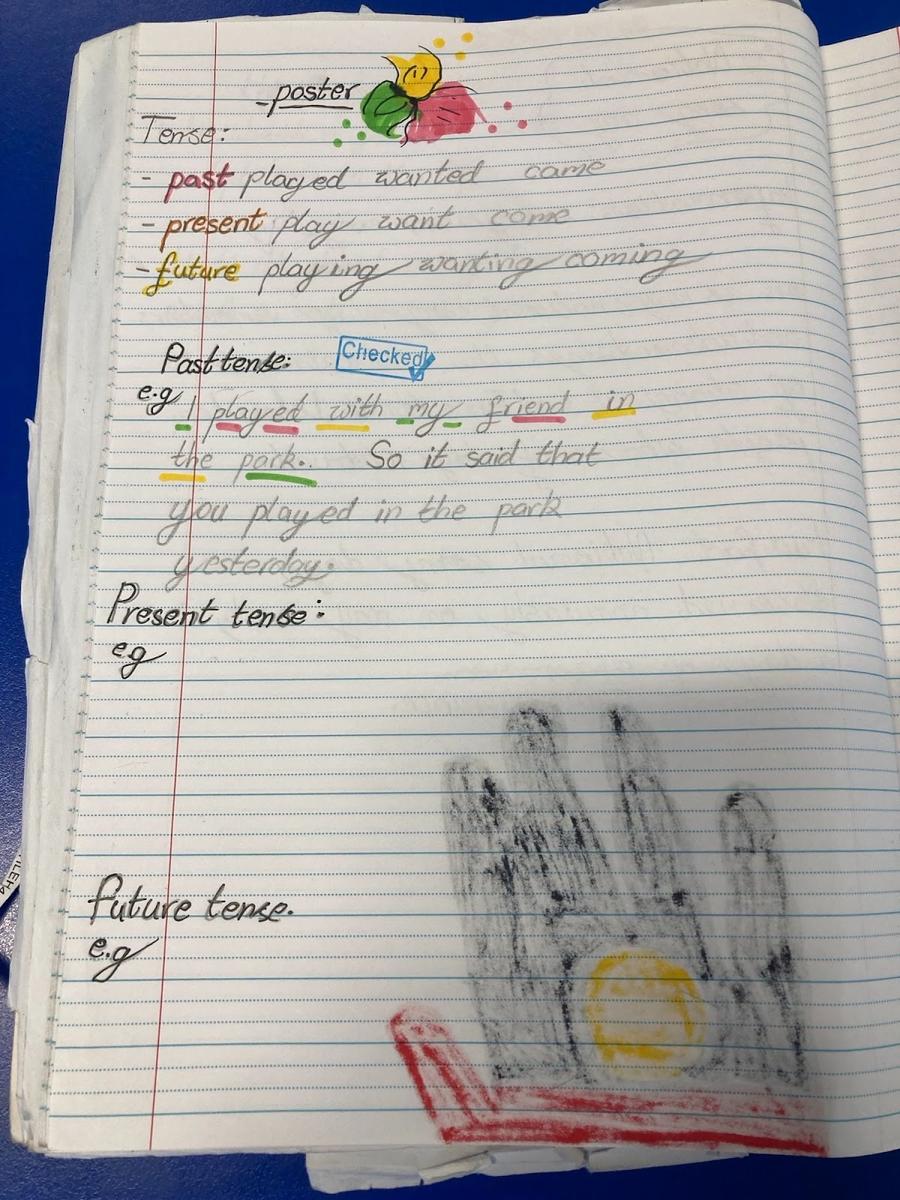 -poster
Tense:
- past played wanted came
- present play want come
- future playing wanting coming
Past tense: Checked
e.g I played with my friend in
the park.. So it said that
you played in the park
yesterday.
Present tense:
eg
future tense.
e.g